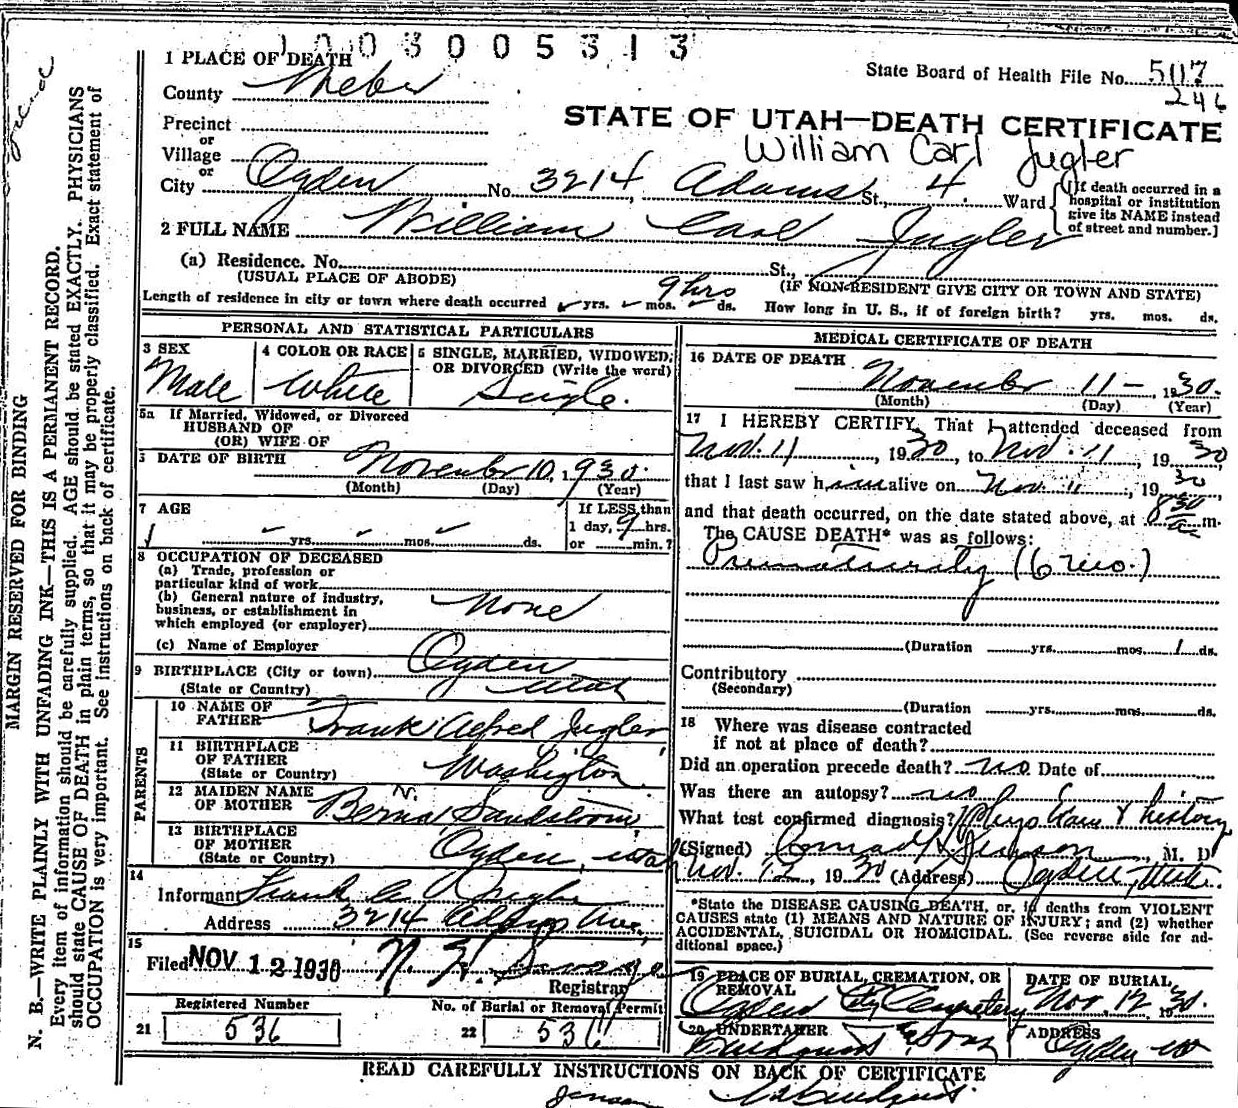 1003005313
1 PLACE OF DEATH
State Board of Health File No. 507
246
County Weber
STATE OF UTAH—DEATH CERTIFICATE
Precinct
or
William Carl Jugler
Village
or
City Ogden No. 3214 Adams St., 4. Ward
[If death occurred in a
hospital or institution
give its NAME instead
of street and number.]
2 FULL NAME William Carl Jugler
(a) Residence. No. St.,
(USUAL PLACE OF ABODE) (IF NON-RESIDENT GIVE CITY OR TOWN AND STATE)
Length of residence in city or town where death occurred yrs. mos. 9 hrs ds. How long in U. S., if of foreign birth? yrs. mos. ds.
PERSONAL AND STATISTICAL PARTICULARS
3 SEX
Male
4 COLOR OR RACE
White
5 SINGLE, MARRIED, WIDOWED,
OR DIVORCED (Write the word)
Single.
5a If Married, Widowed, or Divorced
HUSBAND OF
(OR) WIFE OF
DATE OF BIRTH November 10, 1930.
(Month) (Day) (Year)
7 AGE
yrs. mos. ds.
If LESS than
1 day, 9 hrs.
or min.?
8 OCCUPATION OF DECEASED
(a) Trade, profession or
particular kind of work
(b) General nature of industry,
business, or establishment in
which employed (or employer) None
(c) Name of Employer
9 BIRTHPLACE (City or town) Ogden
(State or Country) Utah
PARENTS
10 NAME OF
FATHER Frank Alfred Jugler
11 BIRTHPLACE
OF FATHER
(State or Country) Washington
12 MAIDEN NAME
OF MOTHER Berna V. Sandstrom
13 BIRTHPLACE
OF MOTHER
(State or Country) Ogden, Utah
14
Informant Frank A Jugler
Address 3214 Adams Ave.
15
Filed NOV 12 1930
Registrar
Registered Number
21 536
No. of Burial or Removal Permit
22 536
MEDICAL CERTIFICATE OF DEATH
16 DATE OF DEATH
November 11 - 1930.
(Month) (Day) (Year)
17 I HEREBY CERTIFY, That I attended deceased from
Nov. 11, 1930, to Nov. 11, 1930
that I last saw him alive on Nov. 11, 1930,
and that death occurred, on the date stated above, at 8 30 a m.
The CAUSE DEATH* was as follows:
Prematurity (6 mo.)
(Duration yrs. mos. 1 ds.
Contributory
(Secondary)
(Duration yrs. mos. ds.
18 Where was disease contracted
if not at place of death?
Did an operation precede death? no Date of
Was there an autopsy? no
What test confirmed diagnosis? Phys Exam & history
(Signed) Conrad H. Jenson, M. D
Nov. 12, 1930 (Address) Ogden, Utah.
*State the DISEASE CAUSING DEATH, or, in deaths from VIOLENT
CAUSES state (1) MEANS AND NATURE OF INJURY; and (2) whether
ACCIDENTAL, SUICIDAL OR HOMICIDAL. (See reverse side for ad-
ditional space.)
19 PLACE OF BURIAL, CREMATION, OR
REMOVAL
Ogden City Cemetery
DATE OF BURIAL
Nov. 12, 1930.
20 UNDERTAKER
& Son
ADDRESS
Ogden
READ CAREFULLY INSTRUCTIONS ON BACK OF CERTIFICATE
MARGIN RESERVED FOR BINDING
N. B.—WRITE PLAINLY WITH UNFADING INK—THIS IS A PERMANENT RECORD.
Every item of information should be carefully supplied. AGE should be stated EXACTLY. PHYSICIANS
should state CAUSE OF DEATH in plain terms, so that it may be properly classified. Exact statement of
OCCUPATION is very important. See instructions on back of certificate.